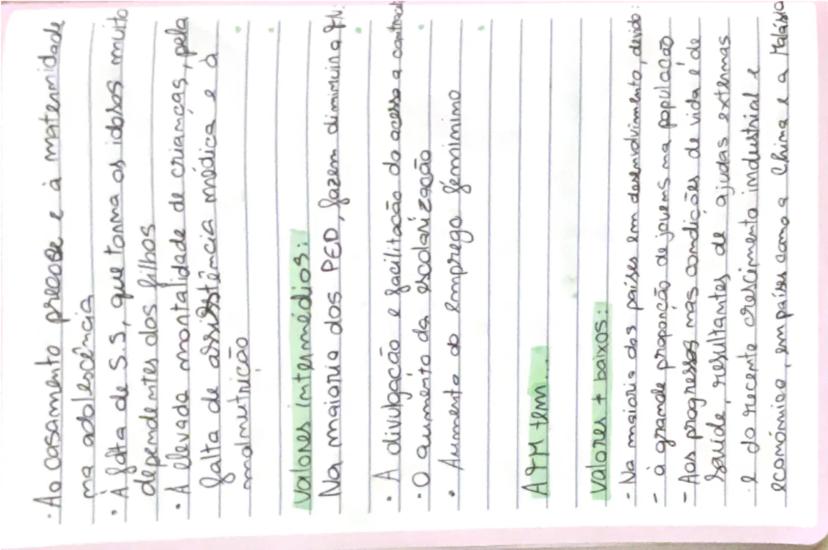 · Ao casamento precose e à maternidade
na adolescência
· À falta de S.S, que torna os idosos muito
dependentes dos filhos
· A elevada mortalidade de crianças, pela
falta de assistência médica e à
malnutrição
Valores intermédios:
Na maioria dos PED, fazem diminuir a TN:
· A divulgação e facilitação do acesso a contrace
· O aumento da escolarização
· Aumento do emprego feminino
A TM tem...
Valores + baixos:
- Na maioria dos países em desenvolvimento, devido:
- à grande proporção de jovens na população
- Aos progressos nas condições de vida e de
saúde, resultantes de ajudas externas
e do recente crescimento industrial e
económico, em países como a China e a Malásia